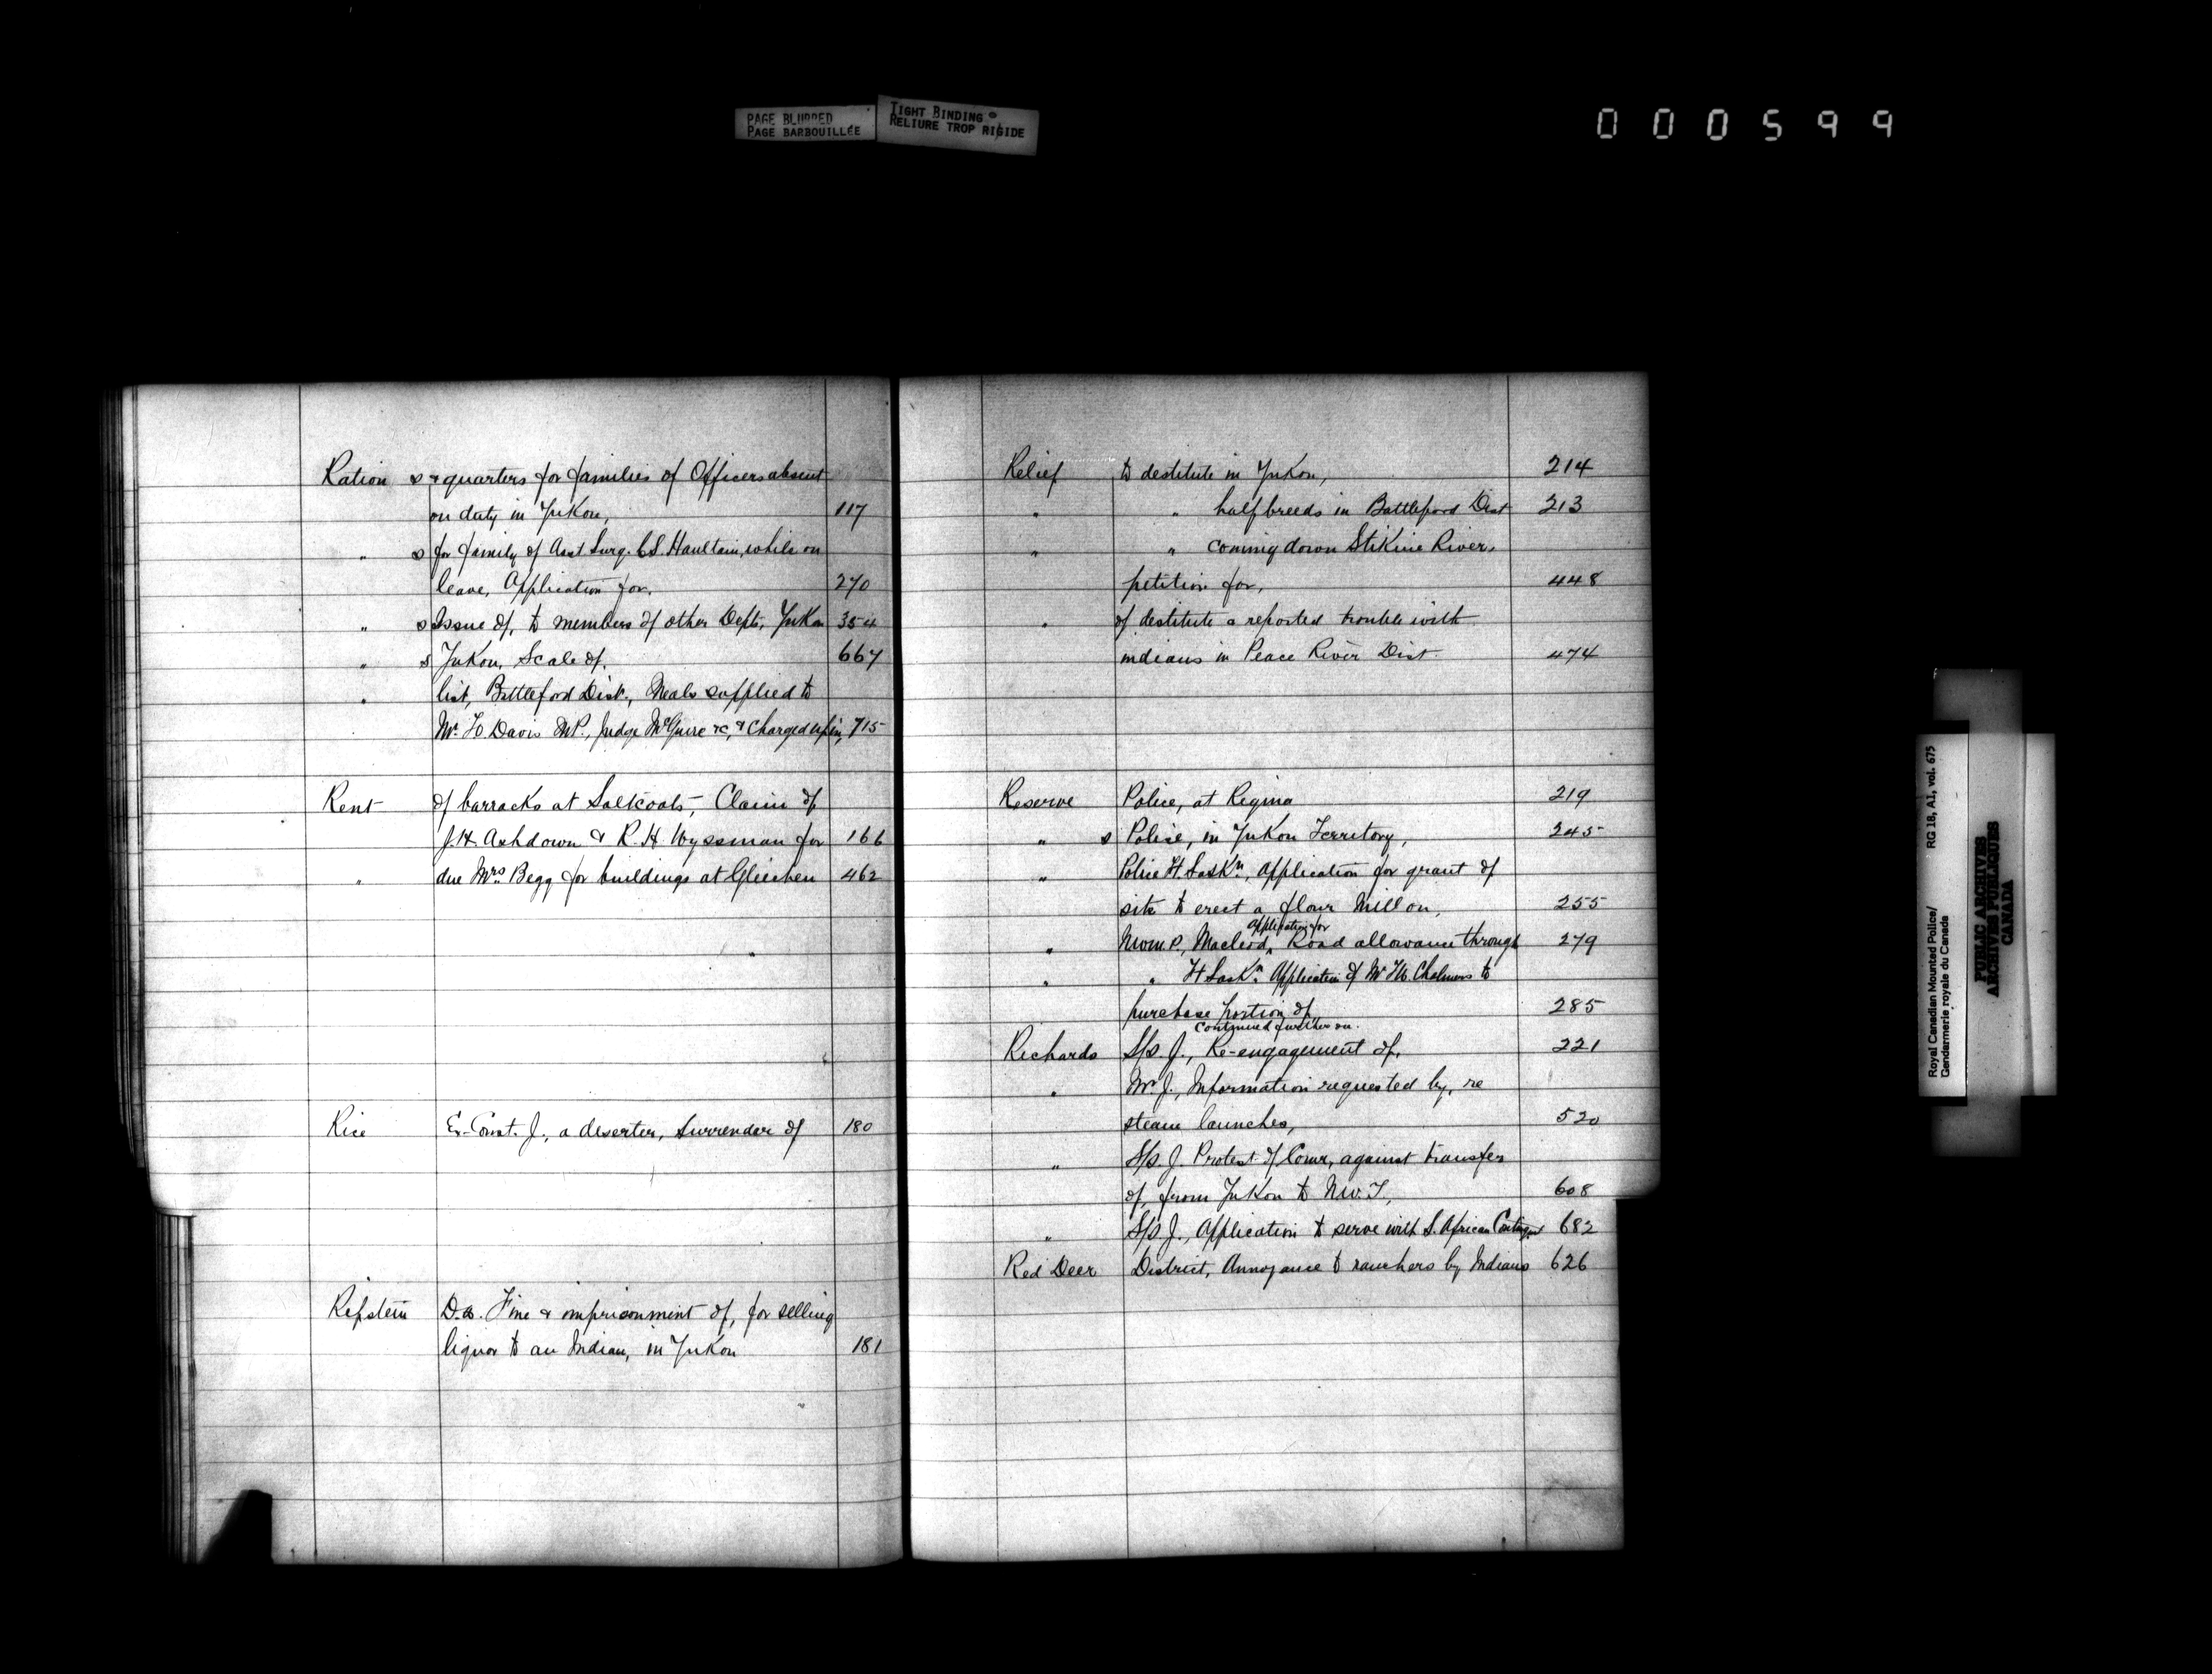 PAGE BLURRED
PAGE BARBOUILLÉE
TIGHT BINDING
RELIURE TROP RIGIDE
000599
Ration s & quarters for families of Officers absent
on duty in Yukon, 117
" s for family of Asst Surg. C.S. Haultain, while on
leave, Application for. 270
" s Issue of, to members of other Depts, Yukon 354
" s Yukon, Scale of. 667
" list, Battleford Dist., Meals supplied to
Mr. Davis M.P., Judge McGuire &c, & Charged up in, 715
Rent of barracks at Saltcoats, Claim of
J.H. Ashdown & R.H. Wyssman for 166
" due Mrs. Begg for buildings at Gleichen 462
Rice Ex-Const. J., a deserter, Surrender of 180
Ripstein D.W. Fine & imprisonment of, for selling
liquor to an Indian, in Yukon 181
Relief to destitute in Yukon, 214
" " halfbreeds in Battleford Dist 213
" " coming down Stikine River,
petition for, 448
" of destitute & reported trouble with
indians in Peace River Dist. 474
Reserve Police, at Regina 219
" s Police, in Yukon Territory, 245
" Police Ft. Saskn, Application for grant of
site to erect a flour Mill on, 255
application for
" N.W.M.P., Macleod, Road allowance through 279
" " Ft Saskn. Application of Mr Chalmers to
purchase portion of, 285
Continued further on.
Richards S/S. J., Re-engagement of, 221
" Mr J., Information requested by, re
steam launches, 520
" S/S. J. Protest of Comr, against transfer
of, from Yukon to N.W.T., 608
" S/S. J., Application to serve with S. African Contingent 682
Red Deer District, Annoyance to ranchers by Indians 626
Royal Canadian Mounted Police/ RG 18, A1, vol. 675
Gendarmerie royale du Canada
PUBLIC ARCHIVES
ARCHIVES PUBLIQUES
CANADA